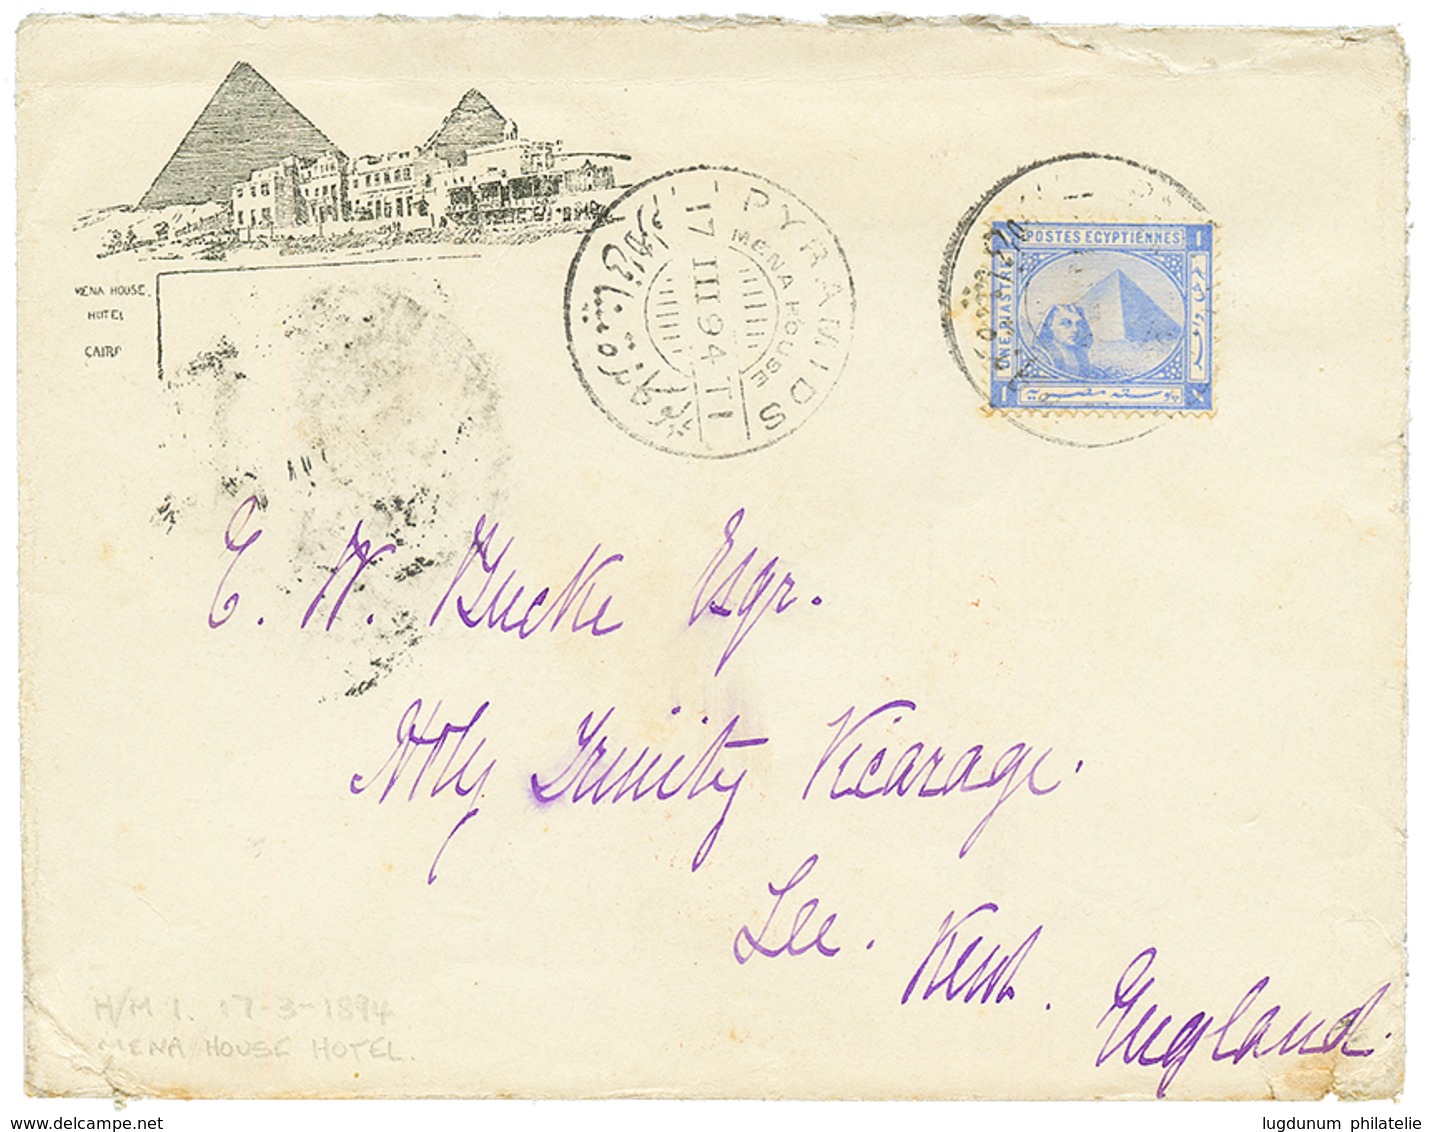 MENA HOUSE.
HOTEL
CAIRO
PYRAMIDS
MENA HOUSE
17 III 94 T1
POSTES EGYPTIENNES
ONE PIASTRE
1
1
١
بوسته مصريه
E. W. Bucke Esqr.
Holy Trinity Vicarage.
Lee. Kent. England.
H/M 1. 17-3-1894
MENA HOUSE HOTEL.
www.delcampe.net
lugdunum philatelie